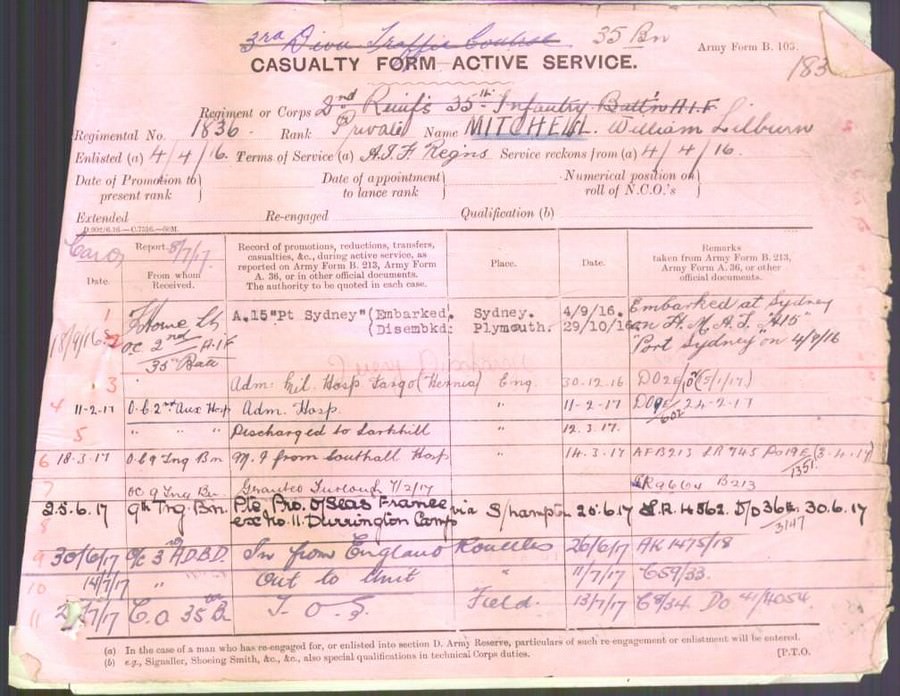 3rd Divn Traffic Control 35 Bn
Army Form B. 103.
183
CASUALTY FORM ACTIVE SERVICE.
Regiment or Corps 2nd Reinfs 35th Infantry Batt'n A.I.F
Regimental No. 1836. Rank Private Name MITCHELL. William Lilburn
Enlisted (a) 4/4/16. Terms of Service (a) A.I.F Regns Service reckons from (a) 4/4/16.
Date of Promotion to present rank } Date of appointment to lance rank } Numerical position on roll of N.C.O.'s }
Extended Re-engaged Qualification (b)
Report. 8/7/17.
Date. From whom Received. Record of promotions, reductions, transfers, casualties, &c., during active service, as reported on Army Form B. 213, Army Form A. 36, or in other official documents. The authority to be quoted in each case. Place. Date. Remarks taken from Army Form B. 213, Army Form A. 36, or other official documents.
1 A.15 "Pt Sydney" (Embarked. Sydney. 4/9/16. Embarked at Sydney
18/9/16 2 OC 2nd A.I.F (Disembkd: Plymouth. 29/10/16. on H.M.A.T. "A15"
35 Batt "Port Sydney" on 4/9/16
3 Adm: Mil. Hosp Fargo (Hernia) Eng. 30.12.16 (5/1/17)
4 11-2-17 O.C 2nd Aux Hosp Adm. Hosp. " 11-2-17 24-2-17
5 " " " Discharged to Larkhill " 12.3.17.
6 18.3.17 O.C 9 Tng Bn M.I from Southall Hosp " 14.3.17 AFB213 LR 745 Do19E (3.4.17)
1351
7 OC 9 Tng Bn. Granted Furlough 7/2/17 B213
25.6.17 9th Trg. Bn. Pte. Pro. O/Seas France via S/hampton 25.6.17 L.R. 4562. D/D36E 30.6.17
8 ex No. 11. Durrington Camp 3147
9 30/6/17 O/c 3 ADBD. In from England Rouelles 26/6/17 AK 1475/18
10 14/7/17 " Out to Unit " 11/7/17 C59/33.
11 C.O 35 B T. O. S. Field. 13/7/17
(a) In the case of a man who has re-engaged for, or enlisted into section D. Army Reserve, particulars of such re-engagement or enlistment will be entered.
(b) e.g., Signaller, Shoeing Smith, &c., &c., also special qualifications in technical Corps duties. [P.T.O.